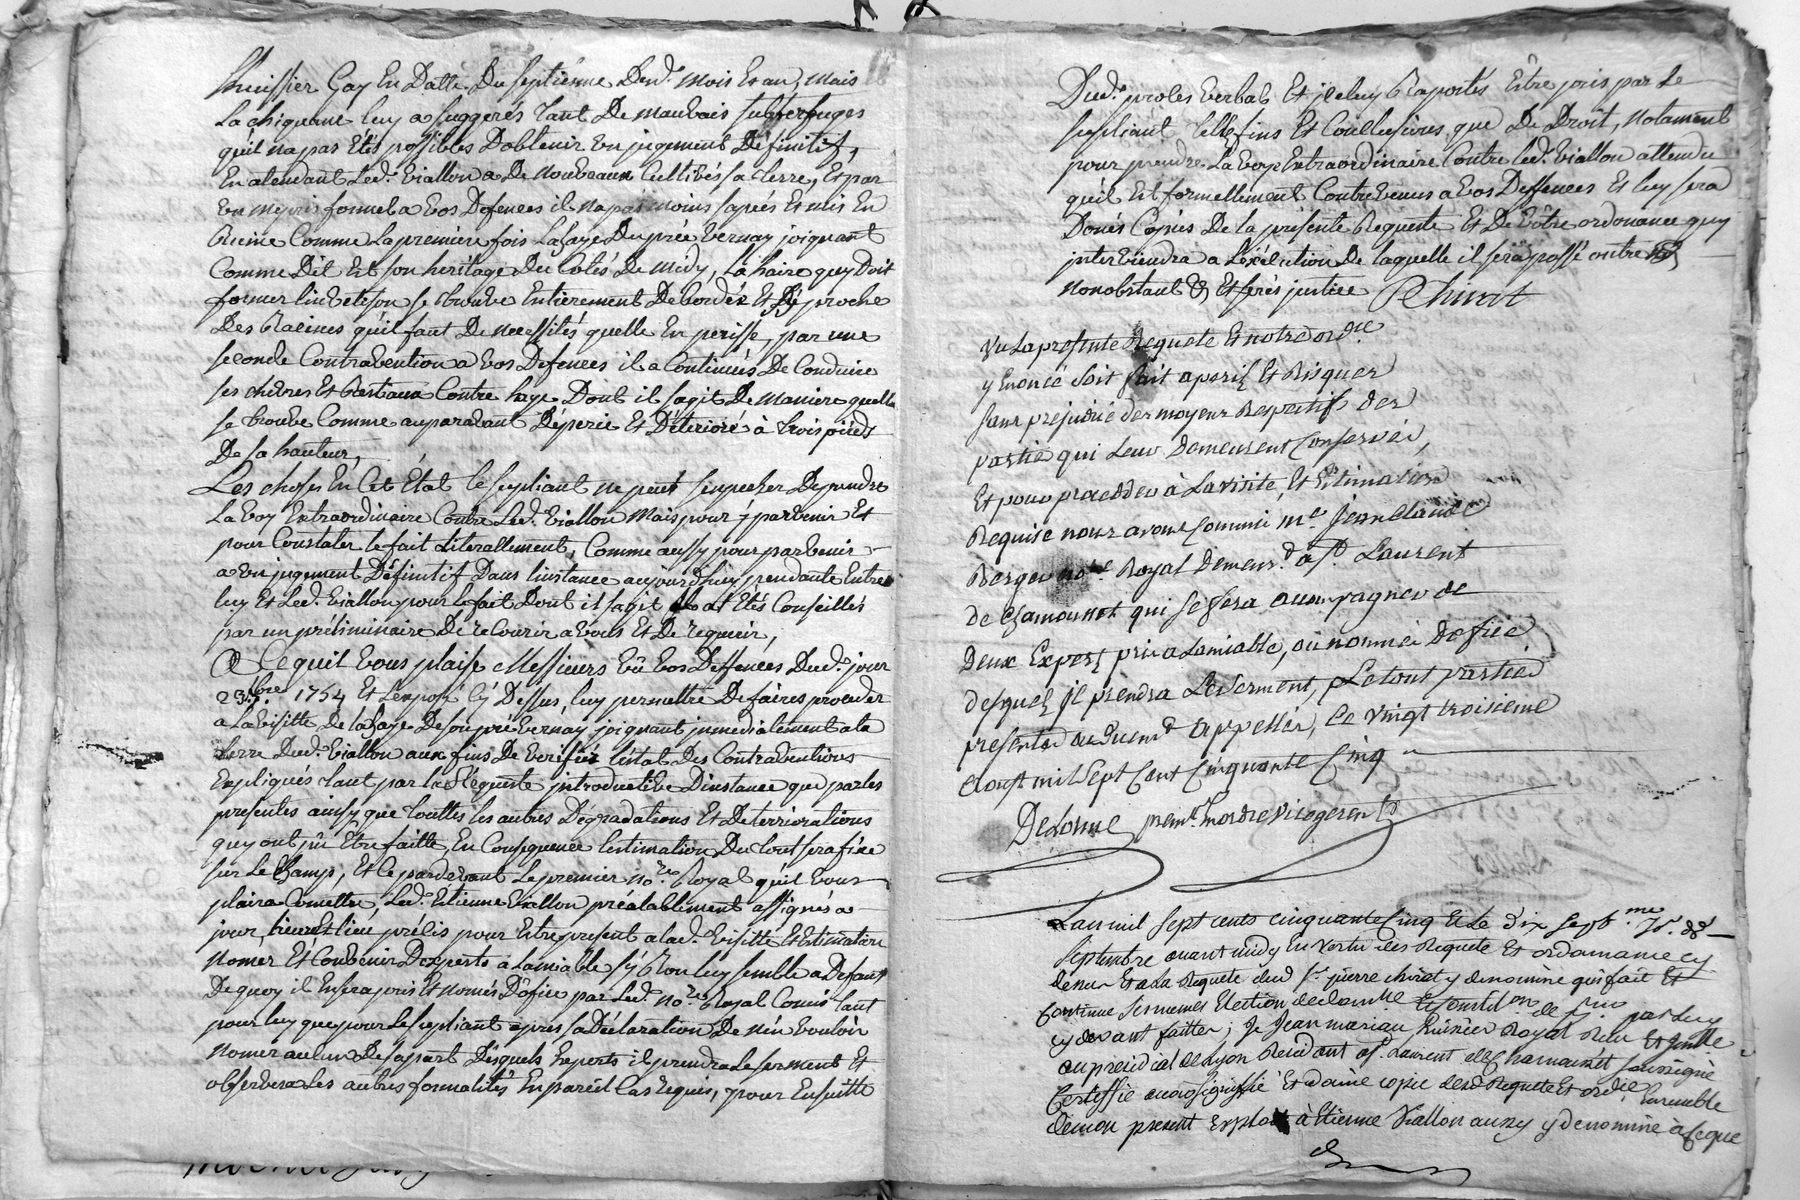 L'huissier Gay En Datte Du septiême Dud. mois Et an, Mais
La chiquane luy a suggerés tant De mauvais subterfuges
qu'il na pas Etés possibles D'obtenir un jugement Définitif,
En atendant Led. Viallon a De nouveaux Cultivés sa terre, Et par
un mépris formel a vos Défences il na pas moins sapées Et mis En
Ruine Comme La premiere fois La haye Du pré Vernay joignant
Comme Dit Est son heritage Du Cotés De midy, La haire quy Doit
former lint se trouve Entierement Debordée Et Si proche
Des Racines qu'il faut De necessités quelle En perisse, par une
seconde Contravention a vos Défences il a Continüés De Conduire
ses chêvres Et Bestiaux Contre haye Dont il sagit De maniere quelle
se trouve Comme auparavant Déperie Et Déteriorée à trois pieds
De sa hauteur,
Les choses En Cet Etat le supliant ne peut s'enpecher De prendre
La voy Extraordinaire Contre Led. Viallon Mais pour y parvenir Et
pour Constater le fait Literallement, Comme aussy pour parvenir
a un jugement Définitif Dans l'instance aujourd'huy pendante Entre
luy Et Led. Viallon pour le fait Dont il sagit il a Etés Conseillés
par un préliminaire De recourir a vous Et De requerir,
A Ce quil vous plaise Messieurs vû vos Deffences Dud. jour
23 .bre 1754 Et Lexposé Cy Dessus, luy permettre De faires proceder
a La visitte de la haye De son pré Vernay joignant jmmediatement a la
terre Dud. Viallon aux fins De verifier l'état Des Contraventions
Expliqués tant par la Requete introductive D'instance que par les
presentes ainsy que touttes les autres Dégradations Et Deteriorations
quy ont pû Etre faitte, En Consequence lestimation Du tout sera fixe
sur le Champ, Et Ce pardevant Le premier no.re Royal qu'il vous
plaira Comettre, Led. Etienne Viallon préalablement assignés a
jour, heure Et lieu précis pour Etre present a lad. visitte Et Estimation
nomer Et Convenir D'experts a Lamiable s'y Bon luy semble a Defaut
De quoy il En sera pris Et només D'ofice par Led. no.re Royal Comis tant
pour luy que pour le supliant apres sa Déclaration De n'en vouloir
nomer aucun De sa part Desquels Experts il prendra le serment Et
observera Les autres formalités En pareil Cas requis, pour Ensuitte
Dud. proces verbal Et jceluy Raportés Etre pris par Le
supliant telle fins Et Conclusions que De Droit, notament
pour prendre La voye Extraordinaire Contre Led. Viallon attendu
qu'il Est formellement Contrevenus a vos Deffences Et luy sera
Donés Copies De la présente Requeste Et De vôtre ordonance quy
jnterviendra a L'exécution De laquelle il sera passé outre
nonobstant & Et ferés justice Chirat
Vu La presente Requete Et notre ord.ce
y Enoncé Soit fait a peril Et Risquer
sans prejudice des moyens Respectifs des
partie qui Leur Demeurent Conservée,
Et pour proceder à La visite, Et Estimation
Requise nous avons Commis m.e Jean Claude
Berger no.re Royal Demeur.t a S.t Laurent
de Chamousset qui se fera accompagner de
Deux Expert pris a Lamiable, ou nommé Dofice
desquel jl prendra Le serment, Le tout partie
presente ou duem.t appellée, Ce vingt troisieme
aoust mil Sept Cent Cinquante Cinq
Delorme prem.r En ordre vicegerent
Lan mil sept cents cinquante Cinq Et Le dix sept.me J.r de
Septembre avant midy En vertu des Requete Et ordonnance cy
dessus Et a La Requete dud S.r pierre chirat y denommé qui fait Et
continue ses memes Election de domicille Et Constit.on de par luy
cy devant faittes, Je Jean mariau huissier Royal Reçu Et jmmlé
au presidial de Lyon Residant a S.t Laurent de Chamousset soussigné
Certiffie avoir signiffié Et donné copie desd Requete Et ord.ce Ensemble
de mon present Exploit à Etienne Viallon aussy y denommé à ce que